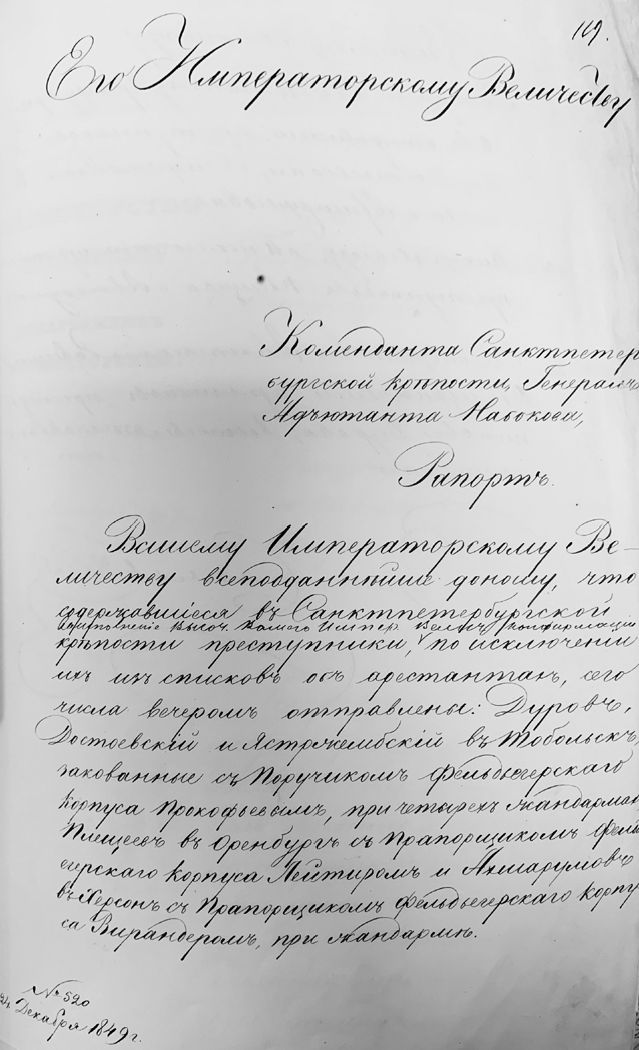 119.
Его Императорскому Величеству
Коменданта Санктпетер
бургской крѣпости, Генералъ
Адъютанта Набокова,
Рапортъ.
Вашему Императорскому Ве-
личеству всеподданнѣйше доношу, что
содержавшіеся въ Санктпетербургской
Высоч. Вашего Импер. Велич. конфирмаціи
крѣпости преступники, по исключеніи
ихъ изъ списковъ объ арестантахъ, сего
числа вечеромъ отправлены: Дуровъ,
Достоевскій и Ястржембскій въ Тобольскъ,
закованные съ Поручикомъ Фельдъегерскаго
Корпуса Прокофьевымъ, при четырехъ жандармахъ
Плещеевъ въ Оренбургъ съ Прапорщикомъ Фельдъ
егерскаго корпуса Лейтиромъ и Ахшарумовъ
въ Херсонъ съ Прапорщикомъ Фельдъегерскаго Корпу
са Вирандеромъ, при жандармѣ.
№ 520
24 Декабря 1849 г.